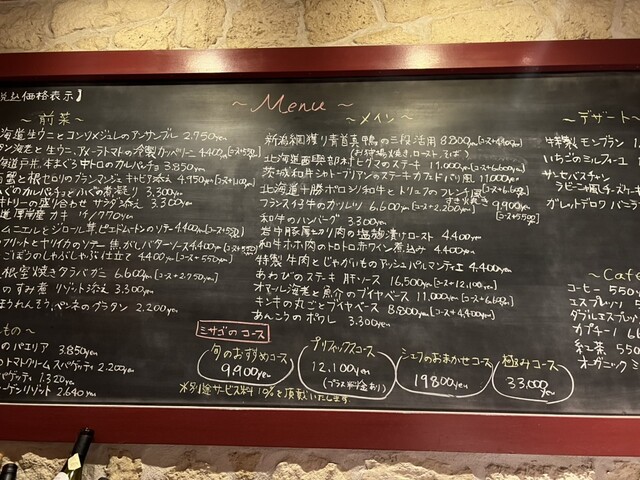 税込価格表示】
～ Menu ～
～ 前菜 ～
海道生ウニとコンソメジュレのアンサンブル 2.750yen
オマール海老と生ウニ、アメーラトマトの冷製カッペリーニ 4.400yen
海道戸井、本まぐろ中トロのカルパッチョ 3.850yen
と根セロリのブランマンジェ キャビア添え 4.950yen
3,300yen
の盛り合わせ サラダ添え 3.300yen
道厚岸産 カキ 770yen
ムニエルとジロール茸
4.400yen
フリットとヤリイカのソテー 焦がしバターソース 4.400yen
ごぼうのしゃぶしゃぶ仕立て 4.400yen
根室 焼きタラバガニ 6.600yen [コース+2.750yen]
のすみ煮 リゾット添え 3.300yen
ほうれんそう、ペンネのグラタン 2.200yen
もの～
のパエリア 3.850yen
トマトクリームスパゲッティ 2.200yen
パゲッティ 1.320yen
リゾット 2.640yen
～ メイン ～
新潟網獲り青首真鴨の三段活用 8.800yen
北海道
ヒグマのステーキ 11.000yen [コース+6.600yen]
茨城和牛シャトーブリアンのステーキ カフェドパリ風 11.000yen
北海道十勝ポロシリ和牛とトリュフのフレンチ風すき焼き 9,900yen [コース+5500yen]
フランス仔牛のカルヴィ 6.600yen [コース+2.200yen]
和牛のハンバーグ 3.300yen
岩中豚厚切り肉の塩麹漬けロースト 4.400yen
和牛ホホ肉のトロトロ赤ワイン煮込み 4.400yen
特製 牛肉とじゃがいものアッシュパルマンティエ 4.400yen
あわびのステーキ 肝ソース 16,500yen [コース+12,100yen]
オマール海老と魚介のブイヤベース 11,000yen [コース+6.600yen]
キンキの丸ごとブイヤベース 8,800yen [コース+4,400yen]
あんこうのポワレ 3.300yen
ミサゴのコース
旬のおすすめコース 9,900yen
プリフィックスコース 12.100yen (プラス料金あり)
シェフのおまかせコース 19800yen
極みコース 33.000yen
※別途サービス料10%を頂戴いたします
～ デザート ～
特製モンブラン
いちごのミルフィーユ
サンセバスチャン
ラビーニャ風チーズケーキ
ガレットデロワ バニラ
～ Cafe
コーヒー 550y
エスプレッソ
ダブルエスプレッソ
カプチーノ
紅茶 550y
オーガニック